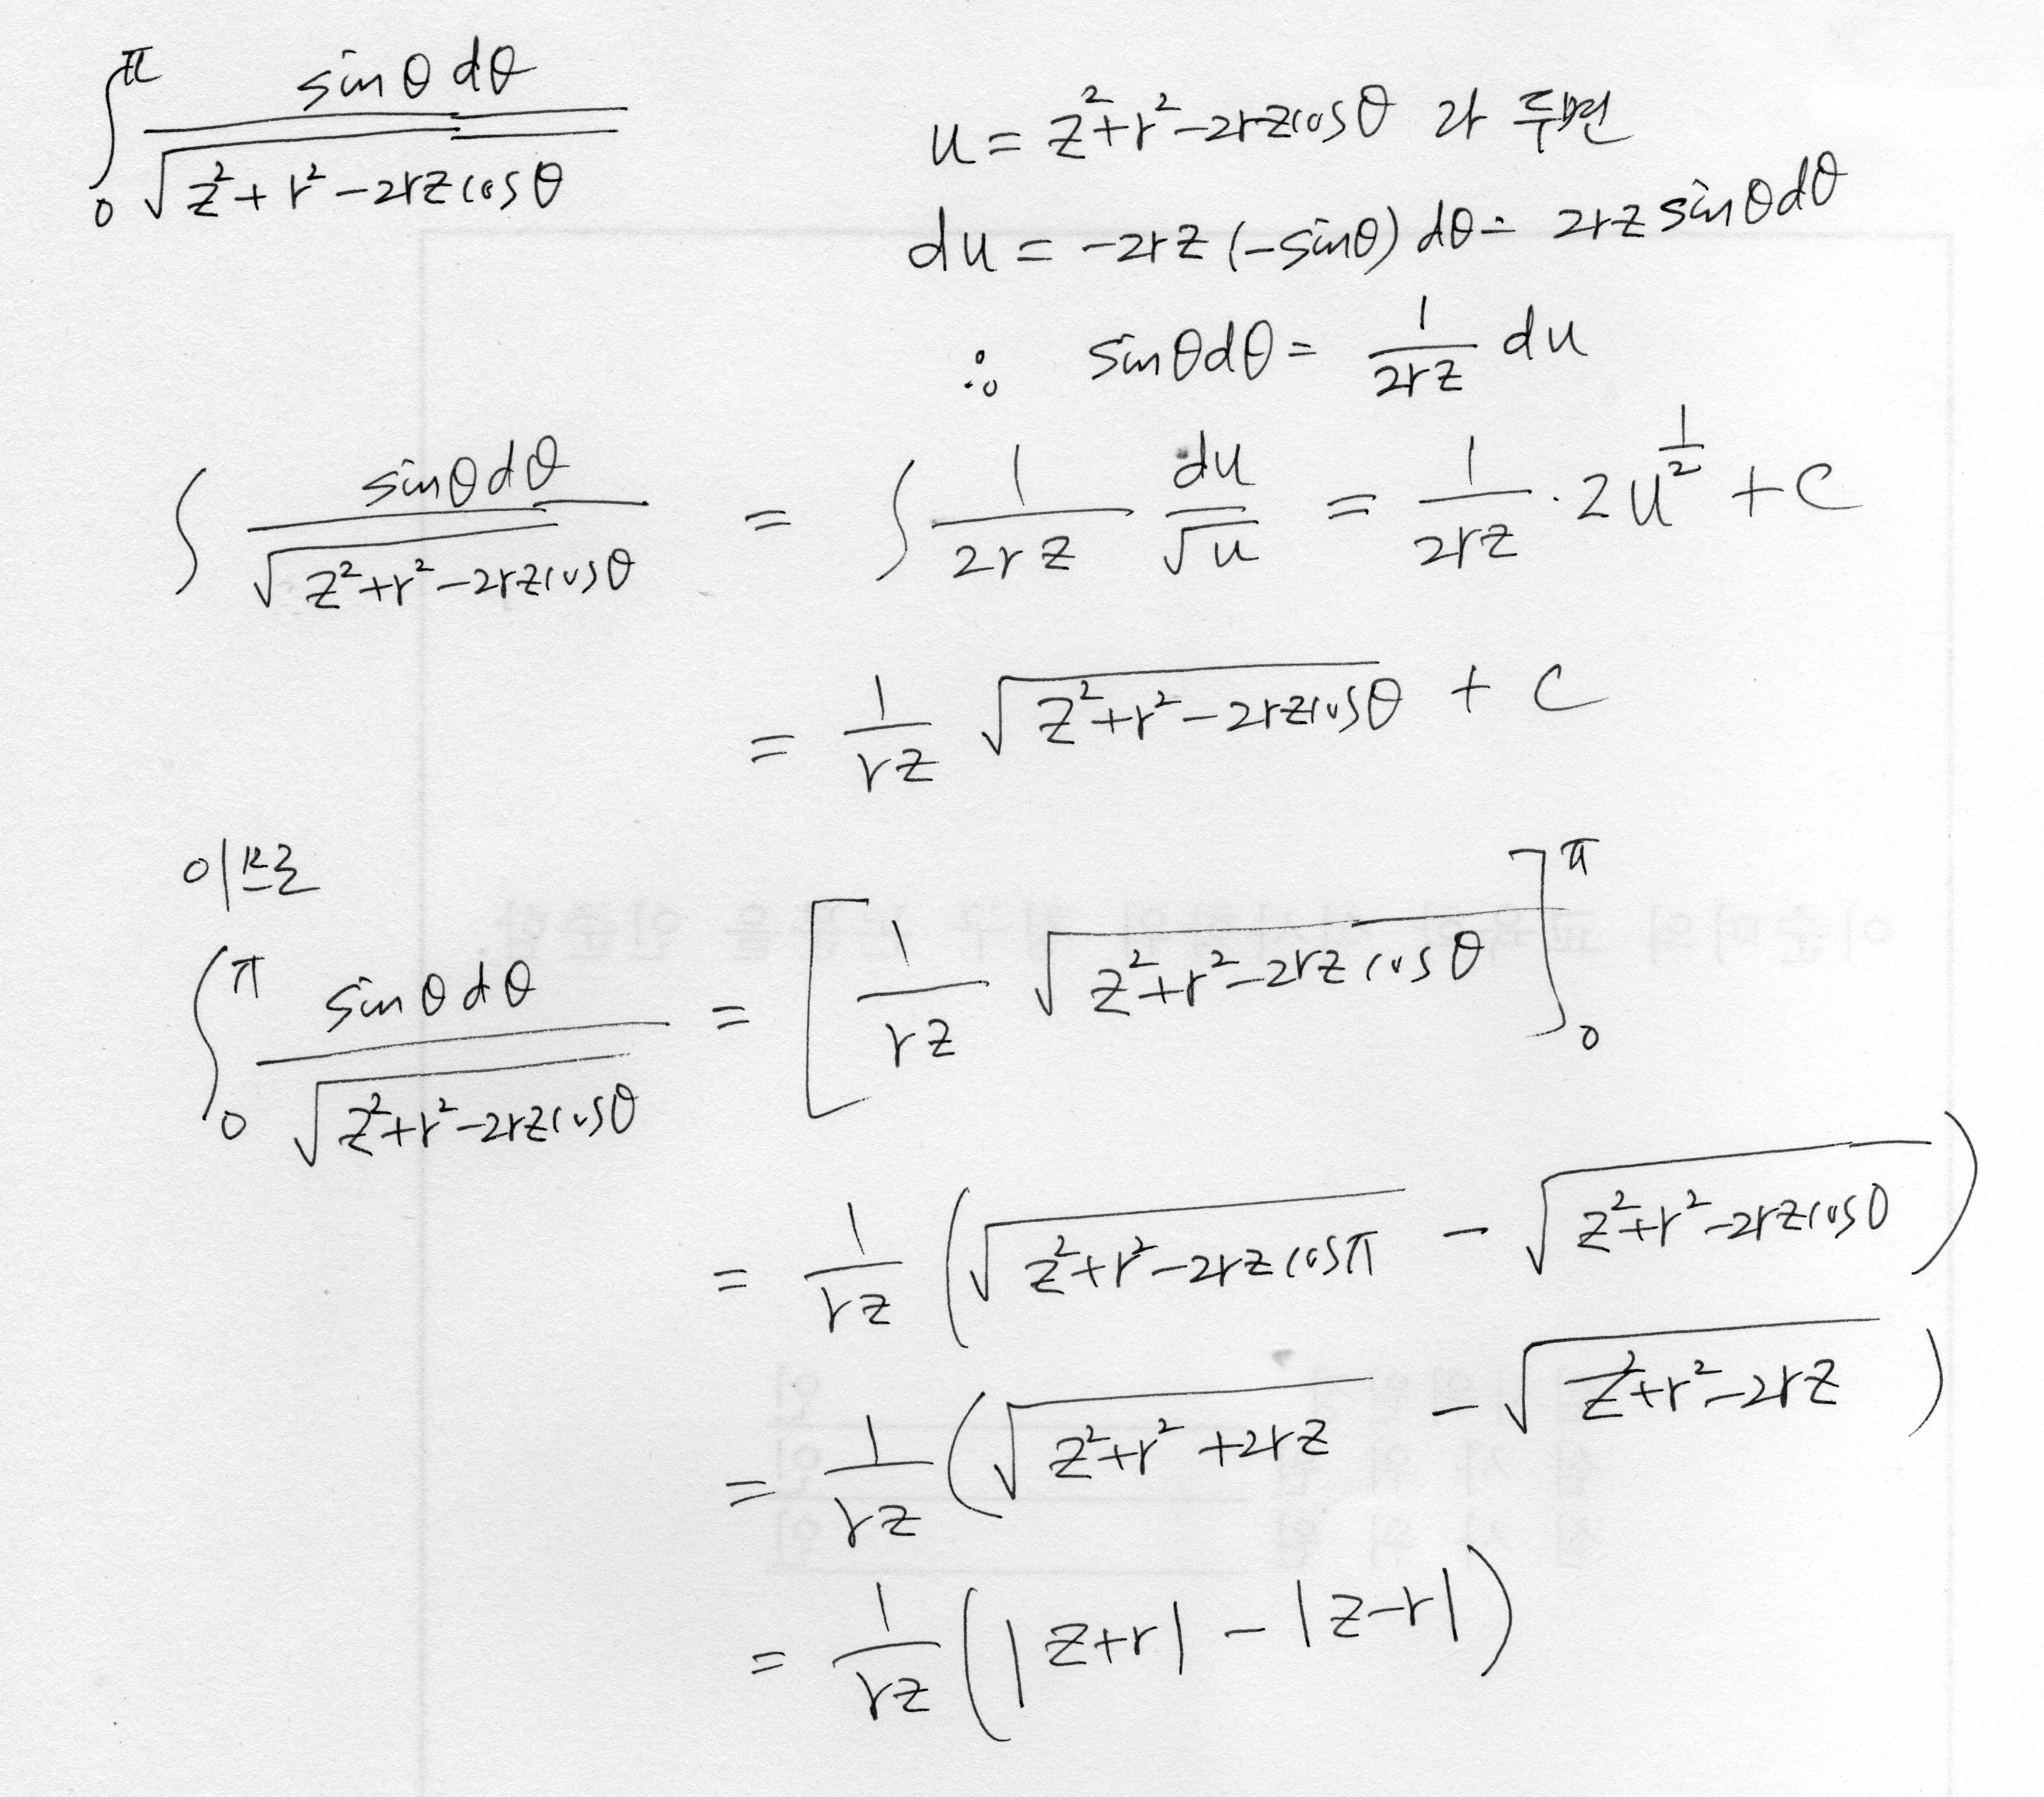 ∫₀^π sinθdθ / √(z²+r²-2rzcosθ)
u = z²+r²-2rzcosθ 라 두면
du = -2rz(-sinθ)dθ = 2rz sinθdθ
∴ sinθdθ = 1/(2rz) du
∫ sinθdθ / √(z²+r²-2rzcosθ) = ∫ 1/(2rz) du/√u = 1/(2rz) · 2u^(1/2) + C
= 1/(rz) √(z²+r²-2rzcosθ) + C
이므로
∫₀^π sinθdθ / √(z²+r²-2rzcosθ) = [ 1/(rz) √(z²+r²-2rzcosθ) ]₀^π
= 1/(rz) ( √(z²+r²-2rzcosπ) - √(z²+r²-2rzcos0) )
= 1/(rz) ( √(z²+r²+2rz) - √(z²+r²-2rz) )
= 1/(rz) ( |z+r| - |z-r| )